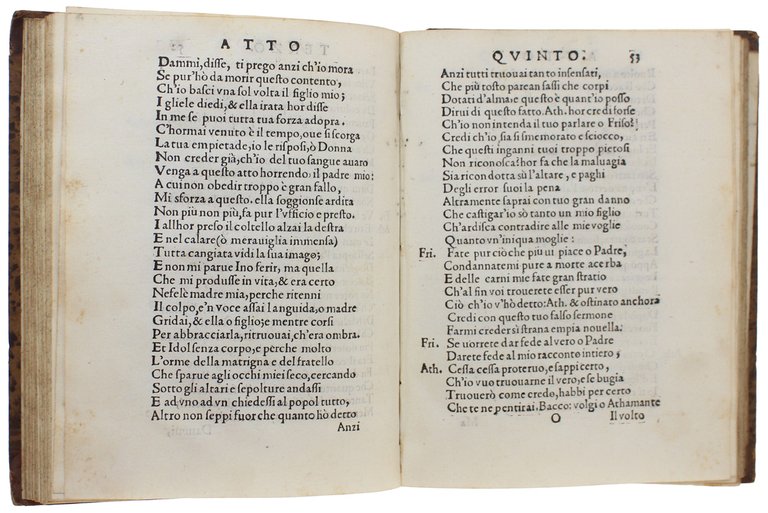 ATTO
Dammi, disse, ti prego anzi ch'io mora
Se pur'hò da morir questo contento,
Ch'io basci vna sol volta il figlio mio;
I gliele diedi, & ella irata hor disse
In me se puoi tutta tua forza adopra.
C'hormai venuto è il tempo, oue si scorga
La tua empietade, io le risposi, ò Donna
Non creder già, ch'io del tuo sangue auaro
Venga a questo atto horrendo; il padre mio:
A cui non obedir troppo è gran fallo,
Mi sforza a questo. ella soggionse ardita
Non più non più, fa pur l'vfficio e presto.
I allhor preso il coltello alzai la destra
E nel calare (ò merauiglia immensa)
Tutta cangiata vidi la sua imago;
E non mi parue Ino ferir, ma quella
Che mi produsse in vita, & era certo
Nefelè madre mia, perche ritenni
Il colpo, e'n voce assai languida, o madre
Gridai, & ella o figlio; e mentre corsi
Per abbracciarla, ritrouai, ch'era ombra.
Et Idol senza corpo, e perche molto
L'orme della matrigna e del fratello
Che sparue agli occhi miei seco, cercando
Sotto gli altari e sepolture andassi
E ad vno ad vn chiedessi al popol tutto,
Altro non seppi fuor che quanto hò detto
Anzi
QVINTO. 53
Anzi tutti truouai tanto insensati,
Che più tosto parean sassi che corpi
Dotati d'alma, e questo è quant'io posso
Dirui di questo fatto. Ath. hor credi forse
Ch'io non intenda il tuo parlare o Friso?
Credi ch'io, sia sì smemorato e sciocco,
Che questi inganni tuoi troppo pietosi
Non riconosca? hor fa che la maluagia
Sia ricondotta a l'altare, e paghi
Degli error suoi la pena
Altramente saprai con tuo gran danno
Che castigar'io sò tanto vn mio figlio
Ch'ardisca contradire alle mie voglie
Quanto vn'iniqua moglie:
Fri. Fate pur ciò che più ui piace o Padre,
Condannatemi pure a morte acerba
E delle carni mie fate gran stratio
Ch'al fin voi trouerete esser pur vero
Ciò ch'io v'hò detto: Ath. & ostinato anchora
Credi con questo tuo falso sermone
Farmi creder sì strana empia nouella.
Fri. Se uorrete dar fede al vero o Padre
Darete fede al mio racconto intiero;
Ath. Cessa cessa proteruo, e sappi certo,
Ch'io vuo truouarne il vero, e se bugia
Truouerò come credo, habbi per certo
Che te ne pentirai. Bacco: volgi o Athamante
O Il volto